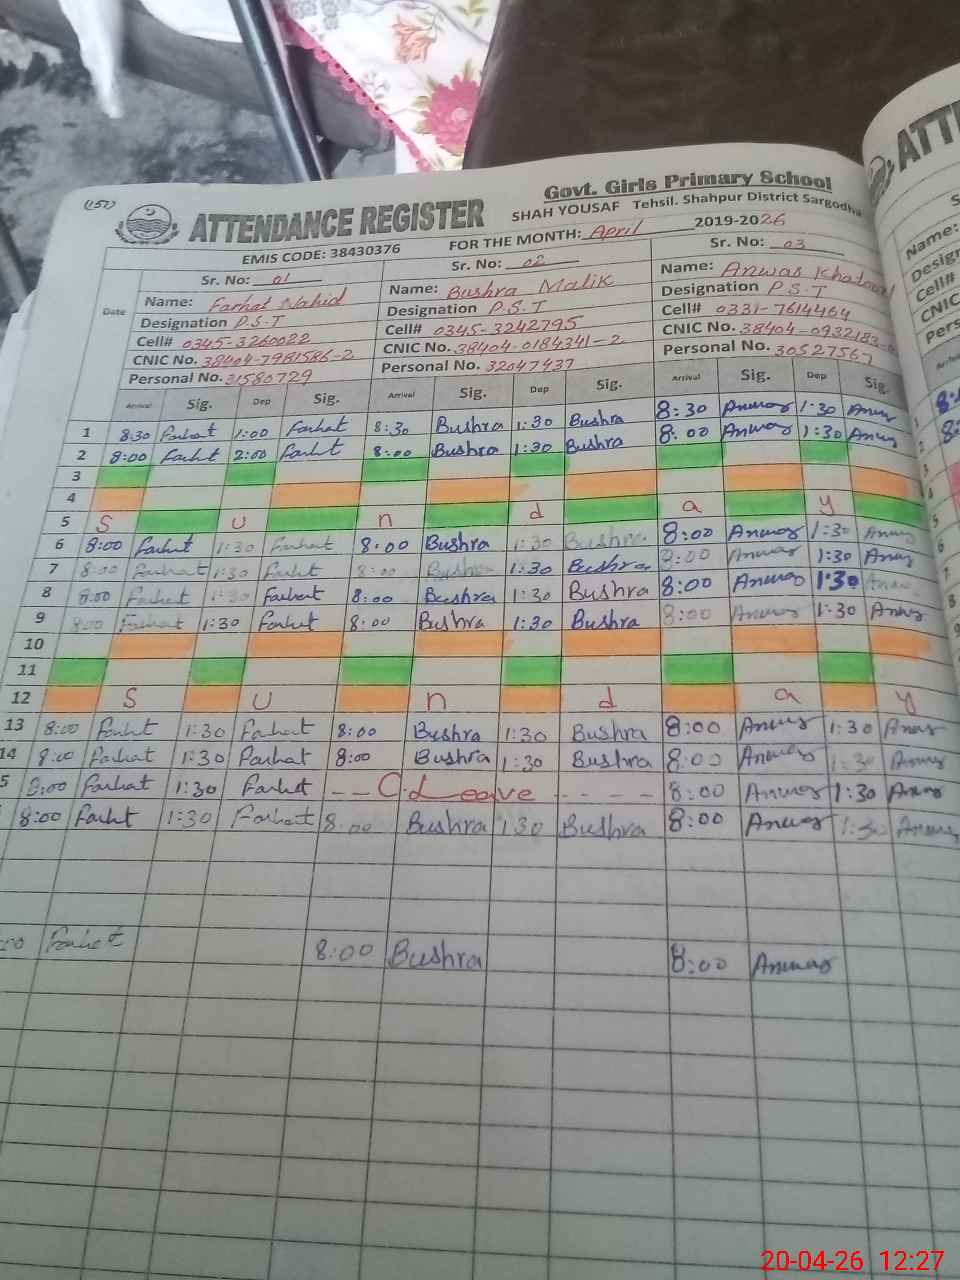 (157)
Govt. Girls Primary School
ATTENDANCE REGISTER
SHAH YOUSAF Tehsil. Shahpur District Sargodha
EMIS CODE: 38430376 FOR THE MONTH: April 2019-2026
Sr. No: 01 Sr. No: 02 Sr. No: 03
Date
Name: Farhat Nahid Name: Bushra Malik Name: Anwar Khatoon
Designation P.S.T Designation P.S.T Designation P.S.T
Cell# 0345-3260022 Cell# 0345-3242795 Cell# 0331-7614464
CNIC No. 38404-7981586-2 CNIC No. 38404-0184341-2 CNIC No. 38404-0932183-
Personal No. 31580729 Personal No. 32047437 Personal No. 30527567
Arrival Sig. Dep Sig. Arrival Sig. Dep Sig. Arrival Sig. Dep Sig.
1 8:30 Farhat 1:00 Farhat 8:30 Bushra 1:30 Bushra 8:30 Anwar 1:30 Anwar
2 8:00 Farhat 2:00 Farhat 8:00 Bushra 1:30 Bushra 8:00 Anwar 1:30 Anwar
3
4
5 S u n d a y
6 8:00 Farhat 1:30 Farhat 8:00 Bushra 1:30 Bushra 8:00 Anwar 1:30 Anwar
7 8:00 Farhat 1:30 Farhat 8:00 Bushra 1:30 Bushra 8:00 Anwar 1:30 Anwar
8 8:00 Farhat 1:30 Farhat 8:00 Bushra 1:30 Bushra 8:00 Anwar 1:30 Anwar
9 8:00 Farhat 1:30 Farhat 8:00 Bushra 1:30 Bushra 8:00 Anwar 1:30 Anwar
10
11
12 S u n d a y
13 8:00 Farhat 1:30 Farhat 8:00 Bushra 1:30 Bushra 8:00 Anwar 1:30 Anwar
14 8:00 Farhat 1:30 Farhat 8:00 Bushra 1:30 Bushra 8:00 Anwar 1:30 Anwar
5 8:00 Farhat 1:30 Farhat C.Leave 8:00 Anwar 1:30 Anwar
8:00 Farhat 1:30 Farhat 8:00 Bushra 1:30 Bushra 8:00 Anwar 1:30 Anwar
Farhat 8:00 Bushra 8:00 Anwar
20-04-26 12:27